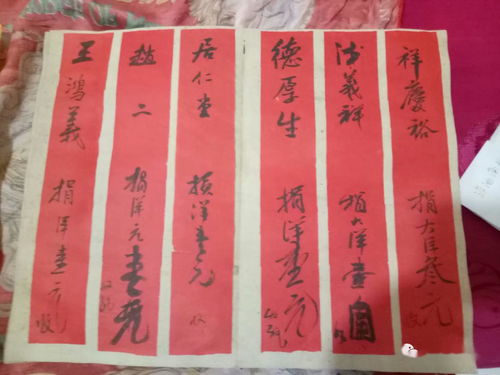 祥慶裕 捐大洋叁元 收
義祥 捐大洋壹
德厚生 捐洋壹元
居仁堂 捐洋壹元 收
趙二 捐洋元壹
王鴻義 捐洋壹元 收